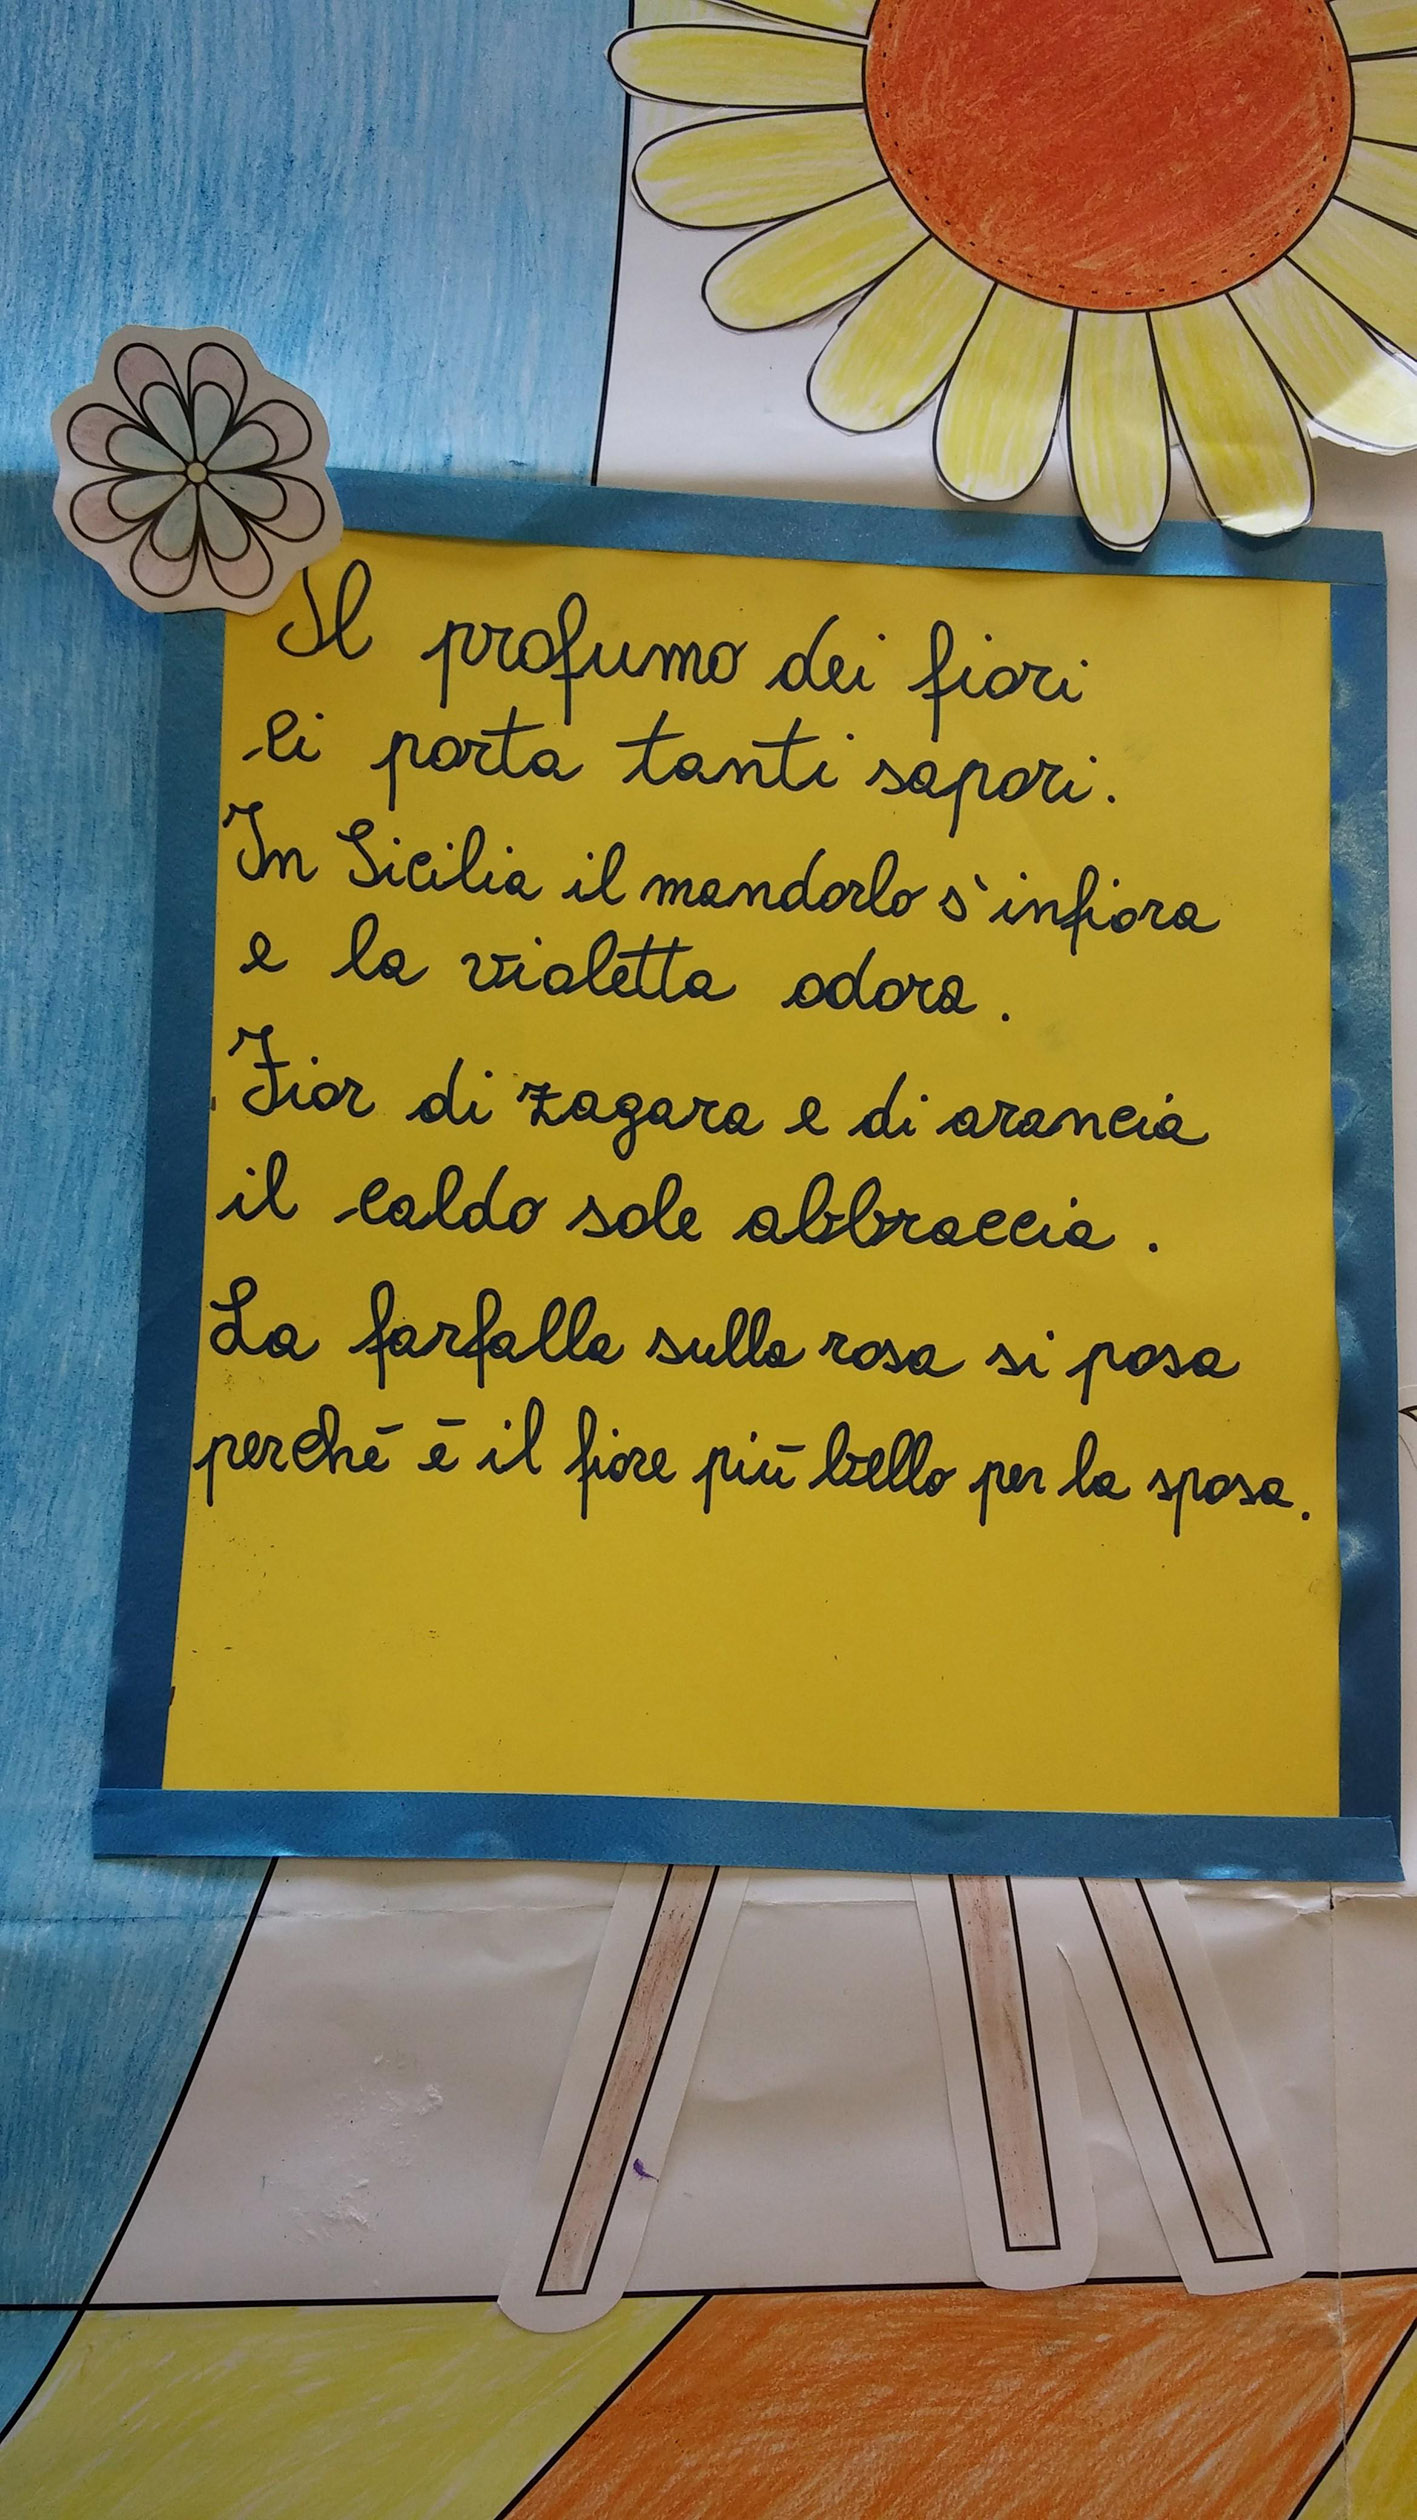 Il profumo dei fiori
ci porta tanti sapori.
In Sicilia il mandorlo s'infiora
e la violetta odora.
Fior di zagara e di arancia
il caldo sole abbraccia.
La farfalla sulla rosa si posa
perchē ē il fiore piū bello per la sposa.